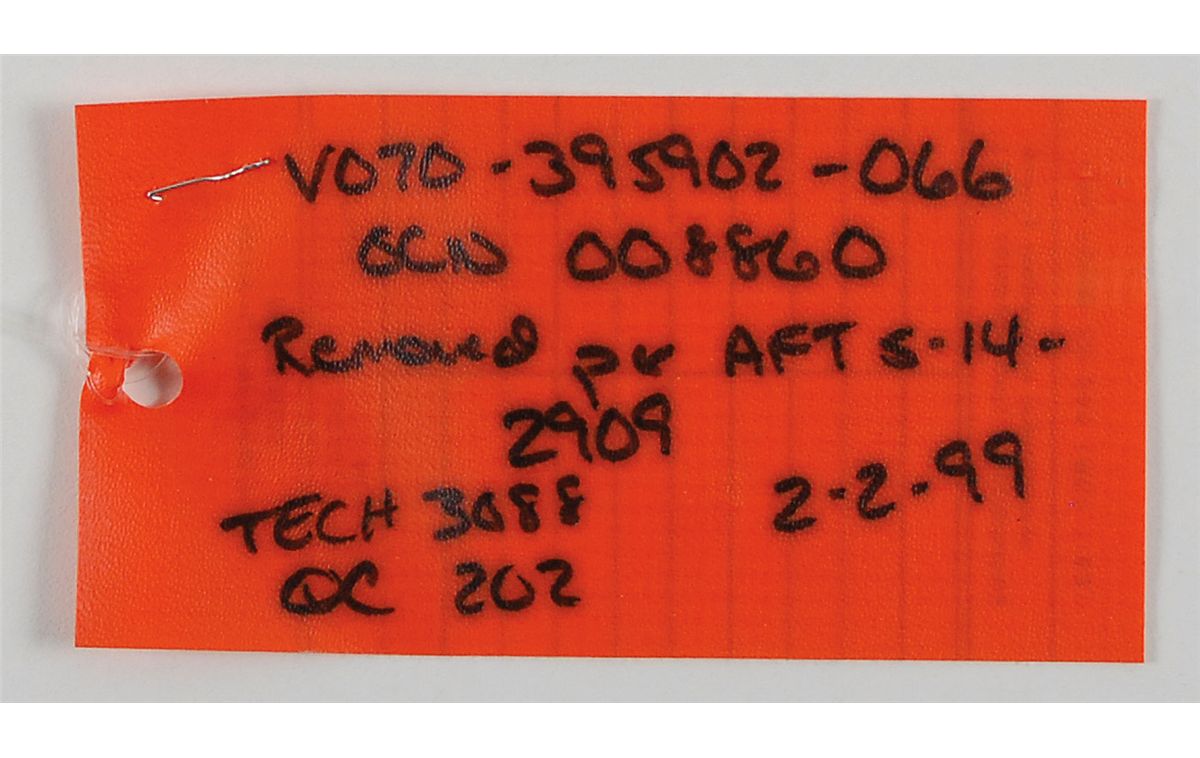 V070-395902-066
OCN 008860
Removed per AFT S-14-
2909
TECH 3088 2-2-99
QC 202